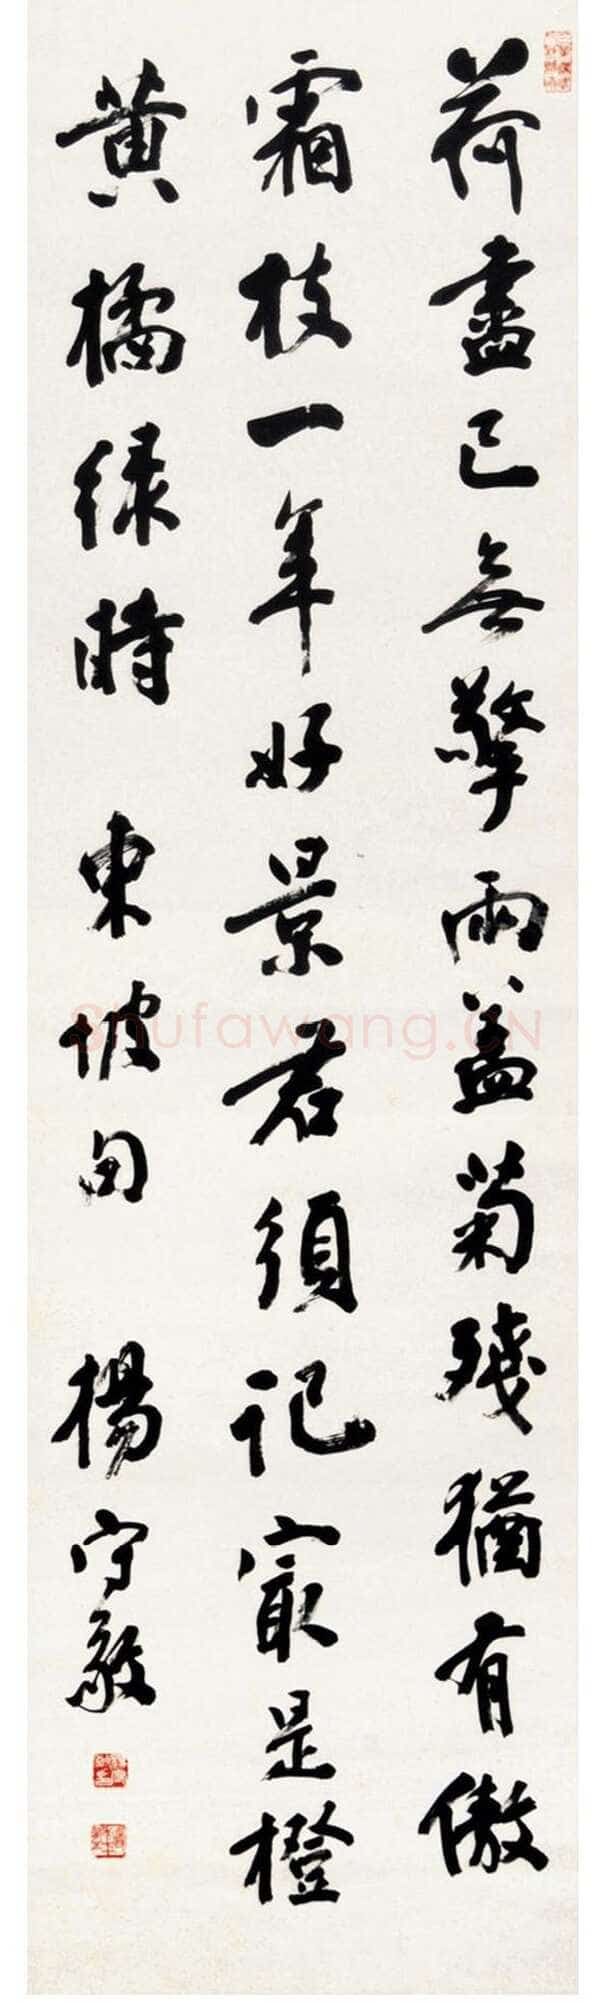 荷盡已無擎雨盖菊殘猶有傲
霜枝一年好景君須記㝡是橙
黄橘緑時 東坡句 楊守敬
Shufawang.CN